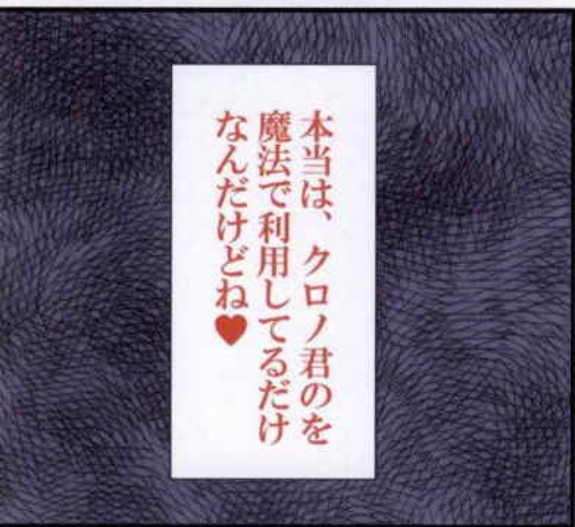 本当は、クロノ君のを
魔法で利用してるだけ
なんだけどね♥